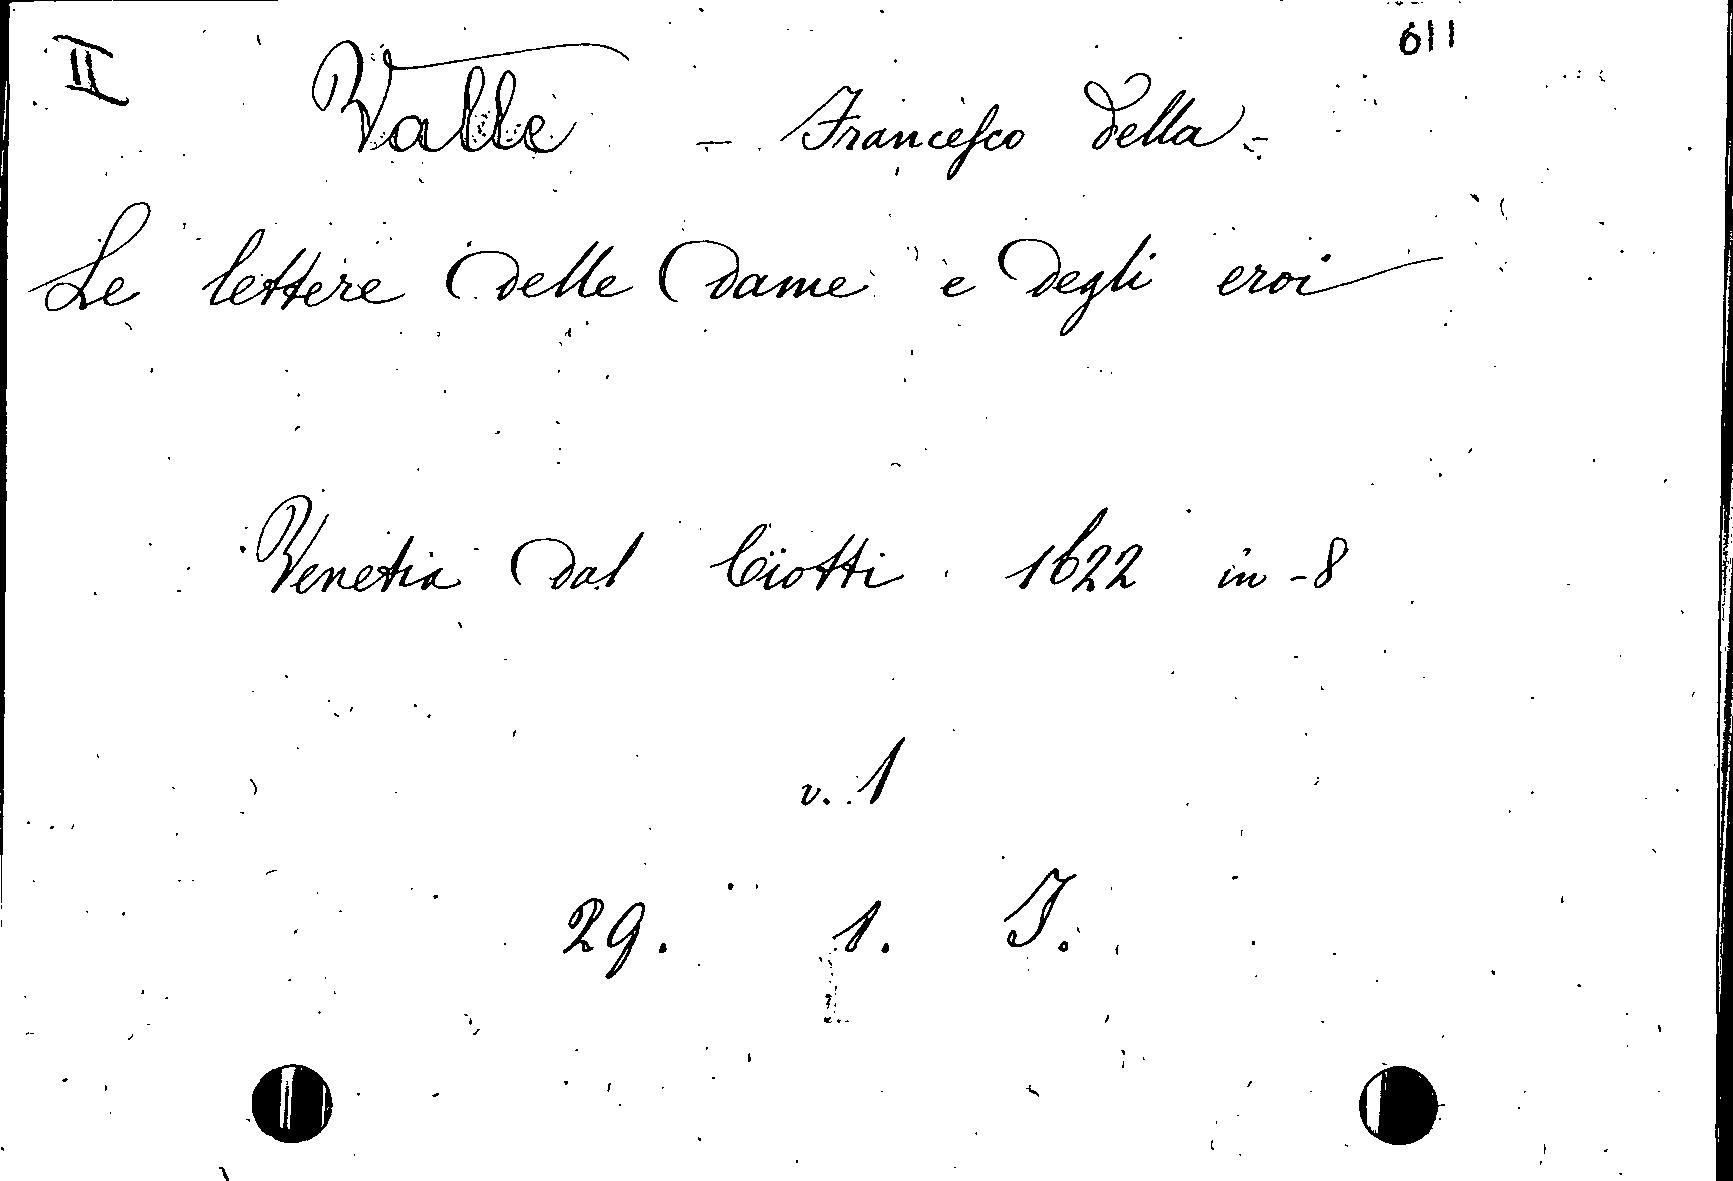 II
611
Valle - Francesco della -
Le lettere delle dame e degli eroi
Venetia dal Ciotti 1622 in-8
v. 1
29. 1. I.